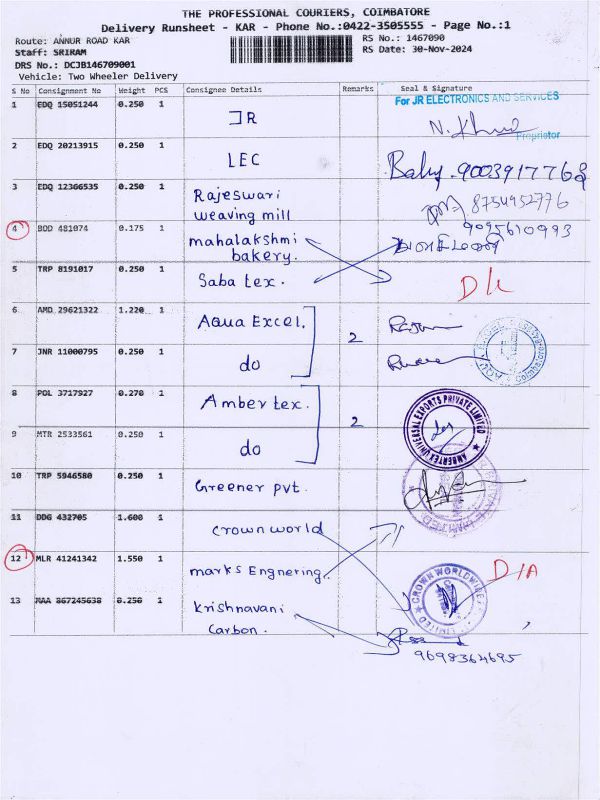 THE PROFESSIONAL COURIERS, COIMBATORE
Delivery Runsheet - KAR - Phone No.:0422-3505555 - Page No.:1
Route: ANNUR ROAD KAR
RS No.: 1467090
Staff: SRIRAM
RS Date: 30-Nov-2024
DRS No.: DCJB146709001
Vehicle: Two Wheeler Delivery
S No Consignment No Weight PCS Consignee Details Remarks Seal & Signature
1 EDQ 15051244 0.250 1 JR For JR ELECTRONICS AND SERVICES
Proprietor
2 EDQ 20213915 0.250 1 LEC Baby. 9003917763
3 EDQ 12366535 0.250 1 Rajeswari weaving mill 8754952776
4 BOD 481074 0.175 1 mahalakshmi bakery. 9095610993
5 TRP 8191017 0.250 1 Saba tex. D/L
6 AMD 29621322 1.220 1 Aqua Excel. 2
7 JNR 11000795 0.250 1 do
8 POL 3717927 0.270 1 Amber tex. 2 AMBERTEX UNIVERSAL EXPORTS PRIVATE LIMITED
9 MTR 2533561 0.250 1 do
10 TRP 5946580 0.250 1 Greener pvt.
11 DDG 432705 1.600 1 crown world
12 MLR 41241342 1.550 1 marks Engnering.. D/A
13 MAA 867245638 0.250 1 Krishnavani Carbon.
9698364695